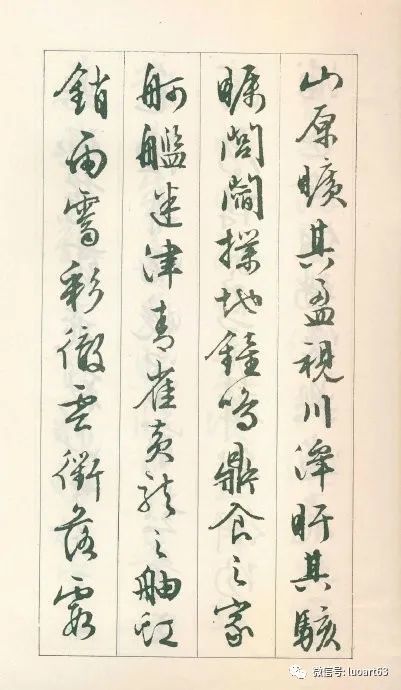 山原曠其盈視川澤盱其駭
矚閭閻撲地鐘鳴鼎食之家
舸艦迷津青雀黃龍之舳虹
銷雨霽彩徹云衢落霞
微信号: luoart63